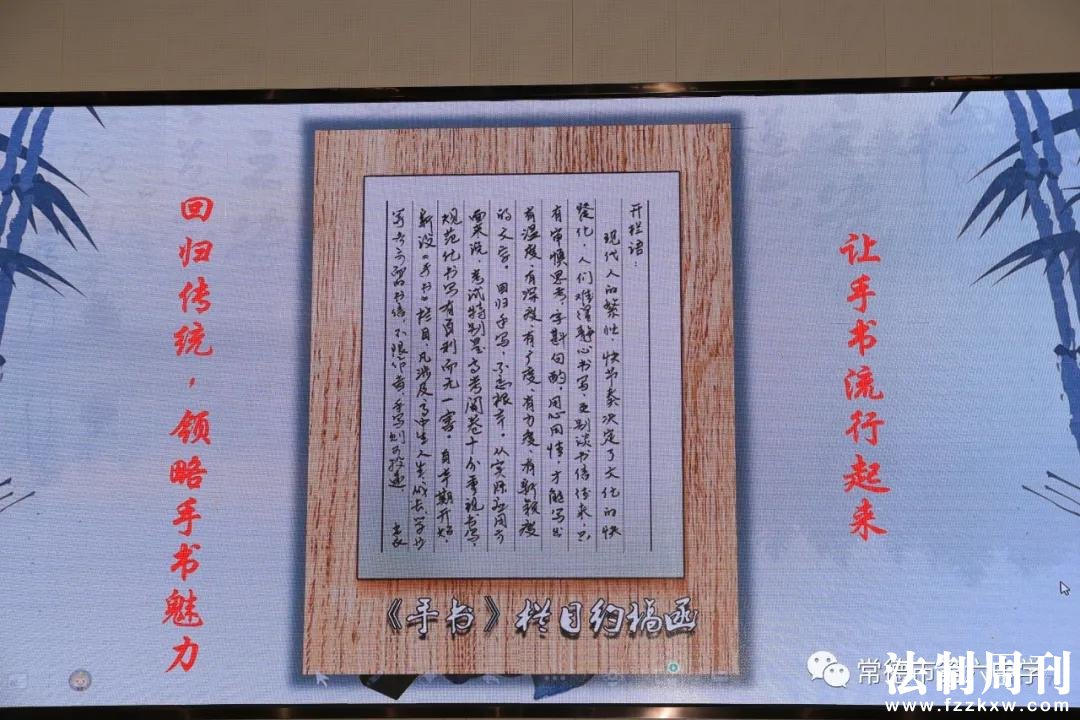 回归传统，领略手书魅力
让手书流行起来
开栏语：
现代人的繁忙，快节奏决定了文化的快
餐化，人们难得静心书写，更别谈书信传来，只
有审慎思考，字斟句酌，用心用情，才能写出
有温度、有深度、有广度、有力度、有新颖度
的文字。回归手写，不忘根本。从实际应用方
面来说，考试特别是高考阅卷十分重视书写，
规范化书写有百利而无一害。自本期开始，
新设《手书》栏目，凡涉及高中生人生、成长、学业
等各方面的书信，不限篇幅，手写则可投递。
《手书》栏目约稿函
常德市
法制周刊
www.fzzkxw.com